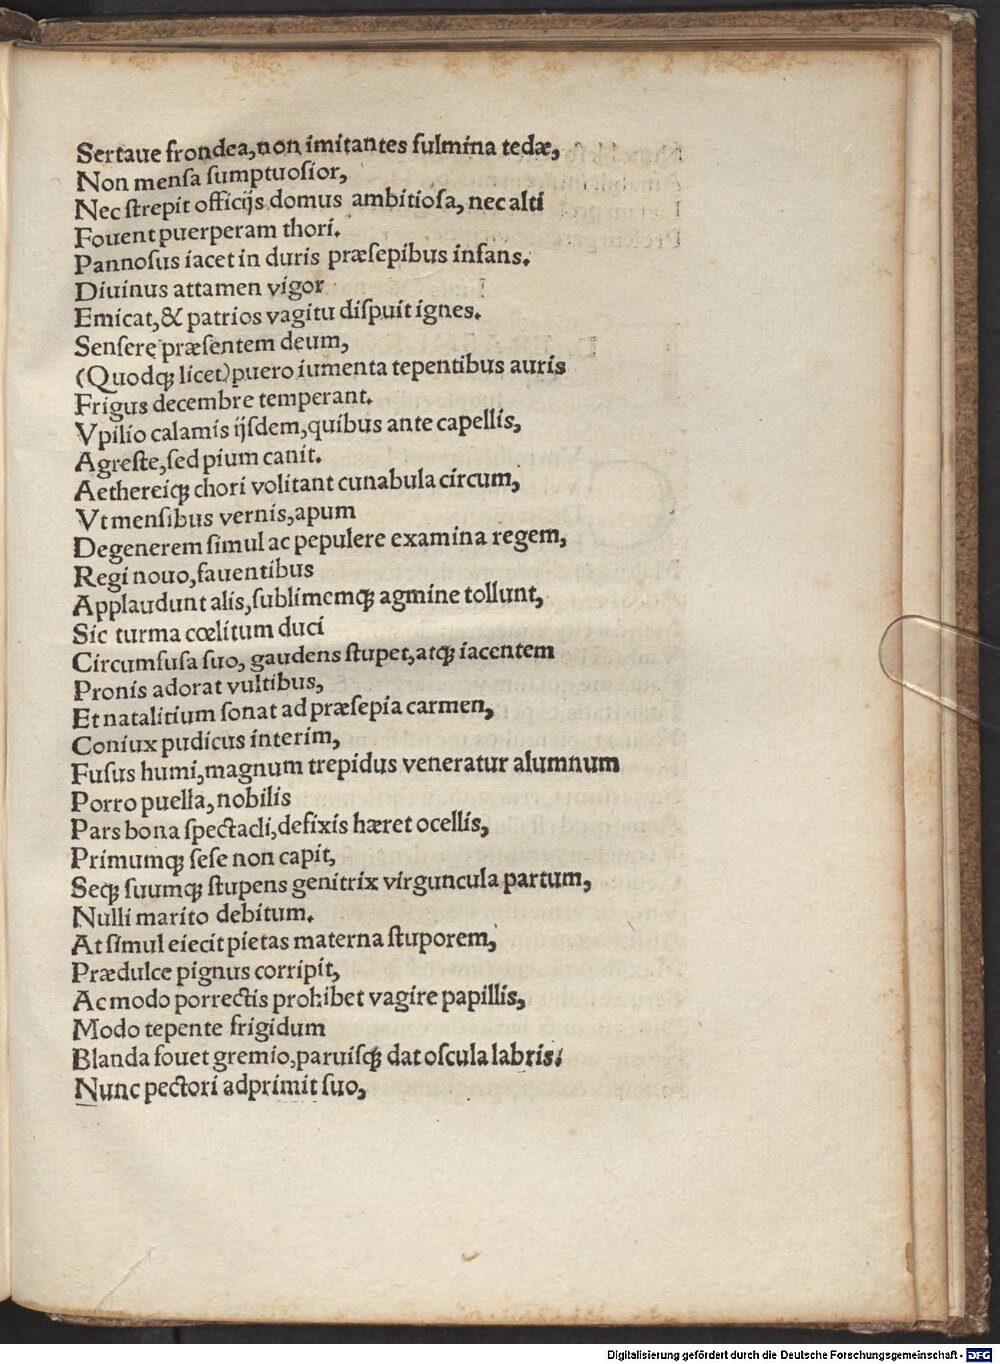 Sertaue frondea,non imitantes fulmina tedæ,
Non mensa sumptuosior,
Nec strepit officijs domus ambitiosa, nec alti
Fouent puerperam thori.
Pannosus iacet in duris præsepibus infans.
Diuinus attamen vigor
Emicat,& patrios vagitu dispuit ignes.
Sensere præsentem deum,
(Quodq; licet) puero iumenta tepentibus auris
Frigus decembre temperant.
Vpilio calamis ijsdem,quibus ante capellis,
Agreste,sed pium canit.
Aethereiq; chori volitant cunabula circum,
Vt mensibus vernis,apum
Degenerem simul ac pepulere examina regem,
Regi nouo,fauentibus
Applaudunt alis,sublimemq; agmine tollunt,
Sic turma cœlitum duci
Circumfusa suo, gaudens stupet,atq; iacentem
Pronis adorat vultibus,
Et natalitium sonat ad præsepia carmen,
Coniux pudicus interim,
Fusus humi,magnum trepidus veneratur alumnum
Porro puella,nobilis
Pars bona spectacli,defixis hæret ocellis,
Primumq; sese non capit,
Seq; suumq; stupens genitrix virguncula partum,
Nulli marito debitum.
At simul eiecit pietas materna stuporem,
Prædulce pignus corripit,
Ac modo porrectis prohibet vagire papillis,
Modo tepente frigidum
Blanda fouet gremio,paruisq; dat oscula labris.
Nunc pectori adprimit suo,
Digitalisierung gefördert durch die Deutsche Forschungsgemeinschaft - DFG